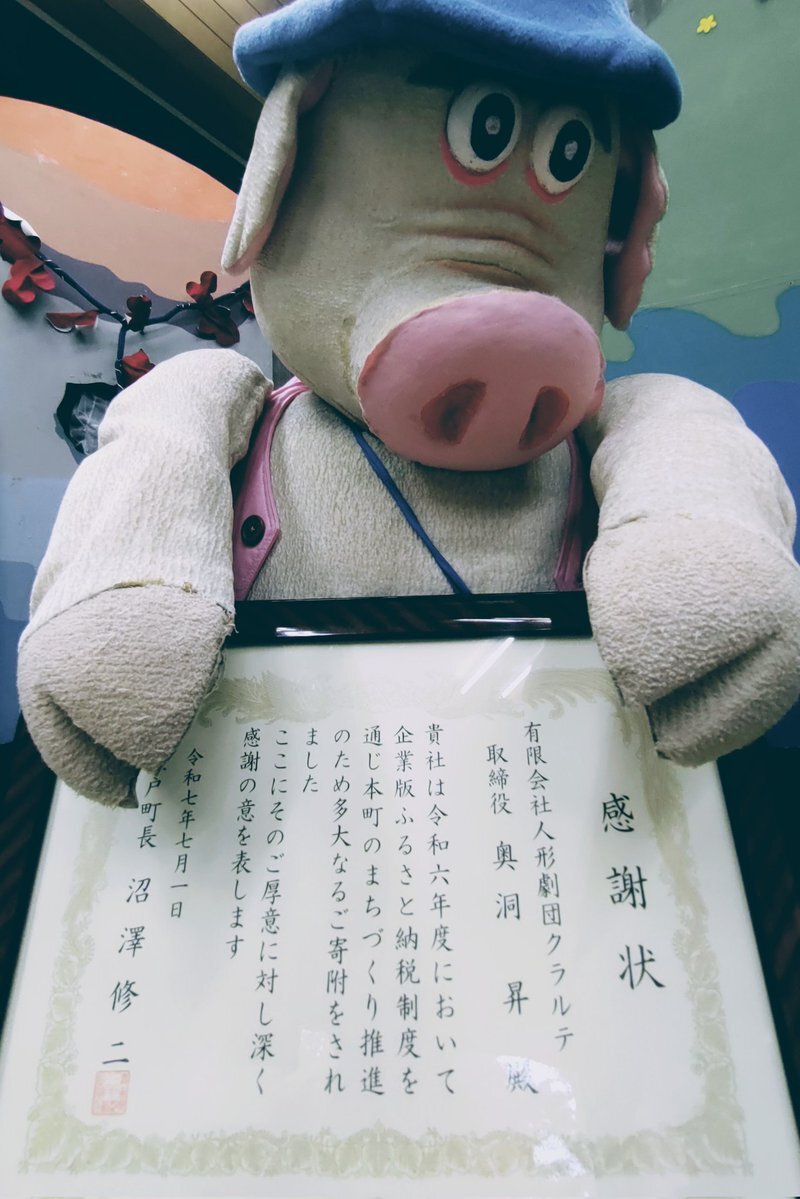 感謝状
有限会社人形劇団クラルテ
取締役 奥洞 昇 殿
貴社は令和六年度において
企業版ふるさと納税制度を
通じ本町のまちづくり推進
のため多大なるご寄附をされ
ました
ここにそのご厚意に対し深く
感謝の意を表します
令和七年七月一日
戸町長 沼澤修二